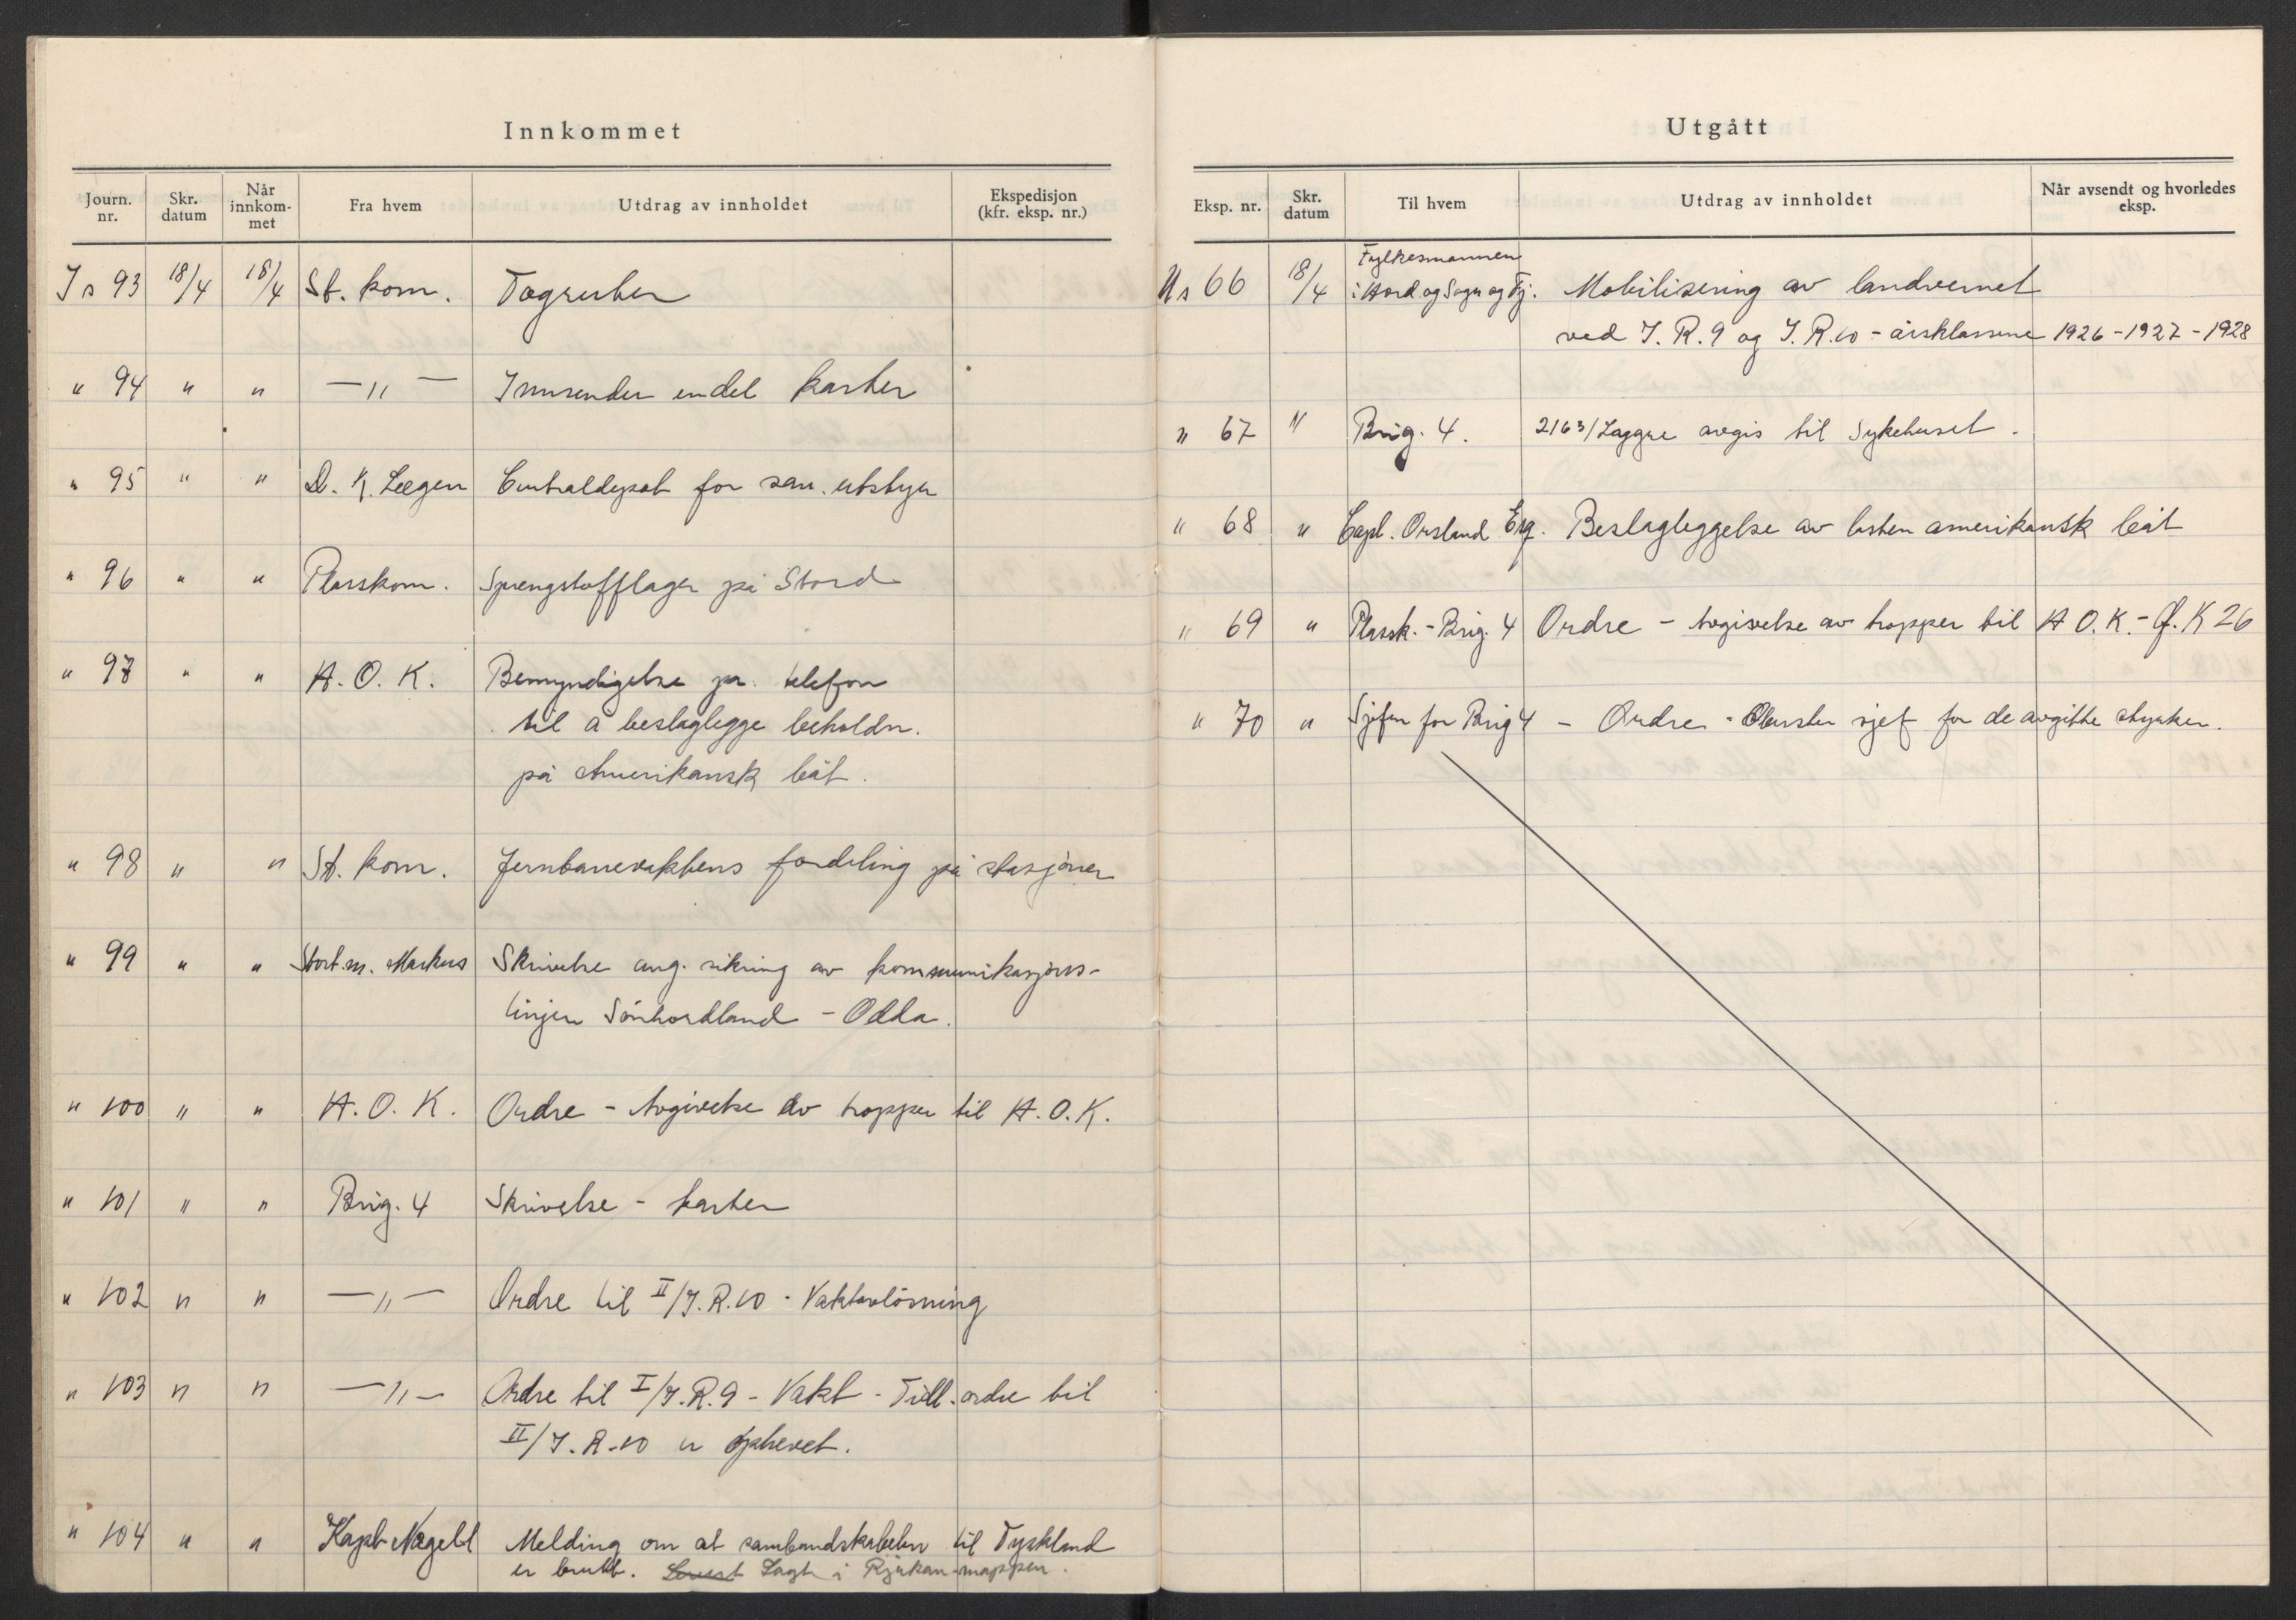 Innkommet
Journ. nr. Skr. datum Når innkom- met Fra hvem Utdrag av innholdet Ekspedisjon (kfr. eksp. nr.)
Is 93 18/4 18/4 St. kom. Togruter
" 94 " " —"— Innsender endel karter
" 95 " " D. K. Legen Centraldepot for san. utstyr
" 96 " " Plasskom. Sprengstofflager på Stord
" 97 " " H. O. K. Bemyndigelse pr. telefon
til å beslaglegge beholdn.
på Amerikansk båt.
" 98 " " St. kom. Jernbanevaktens fordeling på stasjoner
" 99 " " Stort.m. Markus Skrivelse ang. sikring av kommunikasjons-
linjen Sönhordland - Odda.
" 100 " " H. O. K. Ordre - Avgivelse av tropper til H. O. K.
" 101 " " Brig. 4 Skrivelse - karter
" 102 " " —"— Ordre til II/I.R.10 - Vaktavlösning
" 103 " " —"— Ordre til I/I.R.9 - Vakt - Tidl. ordre til
II/I.R.10 er ophevet.
" 104 " " Kapt. Nagell Melding om at sambandskabelen til Tyskland
er brutt. Lagt i Rjukan-mappen.
Utgått
Eksp. nr. Skr. datum Til hvem Utdrag av innholdet Når avsendt og hvorledes eksp.
Us 66 18/4 Fylkesmannen
i Hord og Sogn og Fj. Mobilisering av landvernet
ved I.R.9 og I.R.10 - årsklassene 1926-1927-1928
" 67 " Brig. 4. 2163/Laggre avgis til Sykehuset.
" 68 " Capt. Orsland Esq. Beslagleggelse av lasten amerikansk båt
" 69 " Plassk. - Brig. 4 Ordre - Avgivelse av tropper til H.O.K. - J. K 26
" 70 " Sjefen for Brig 4 - Ordre - Oberster sjef for de avgitte styrker.